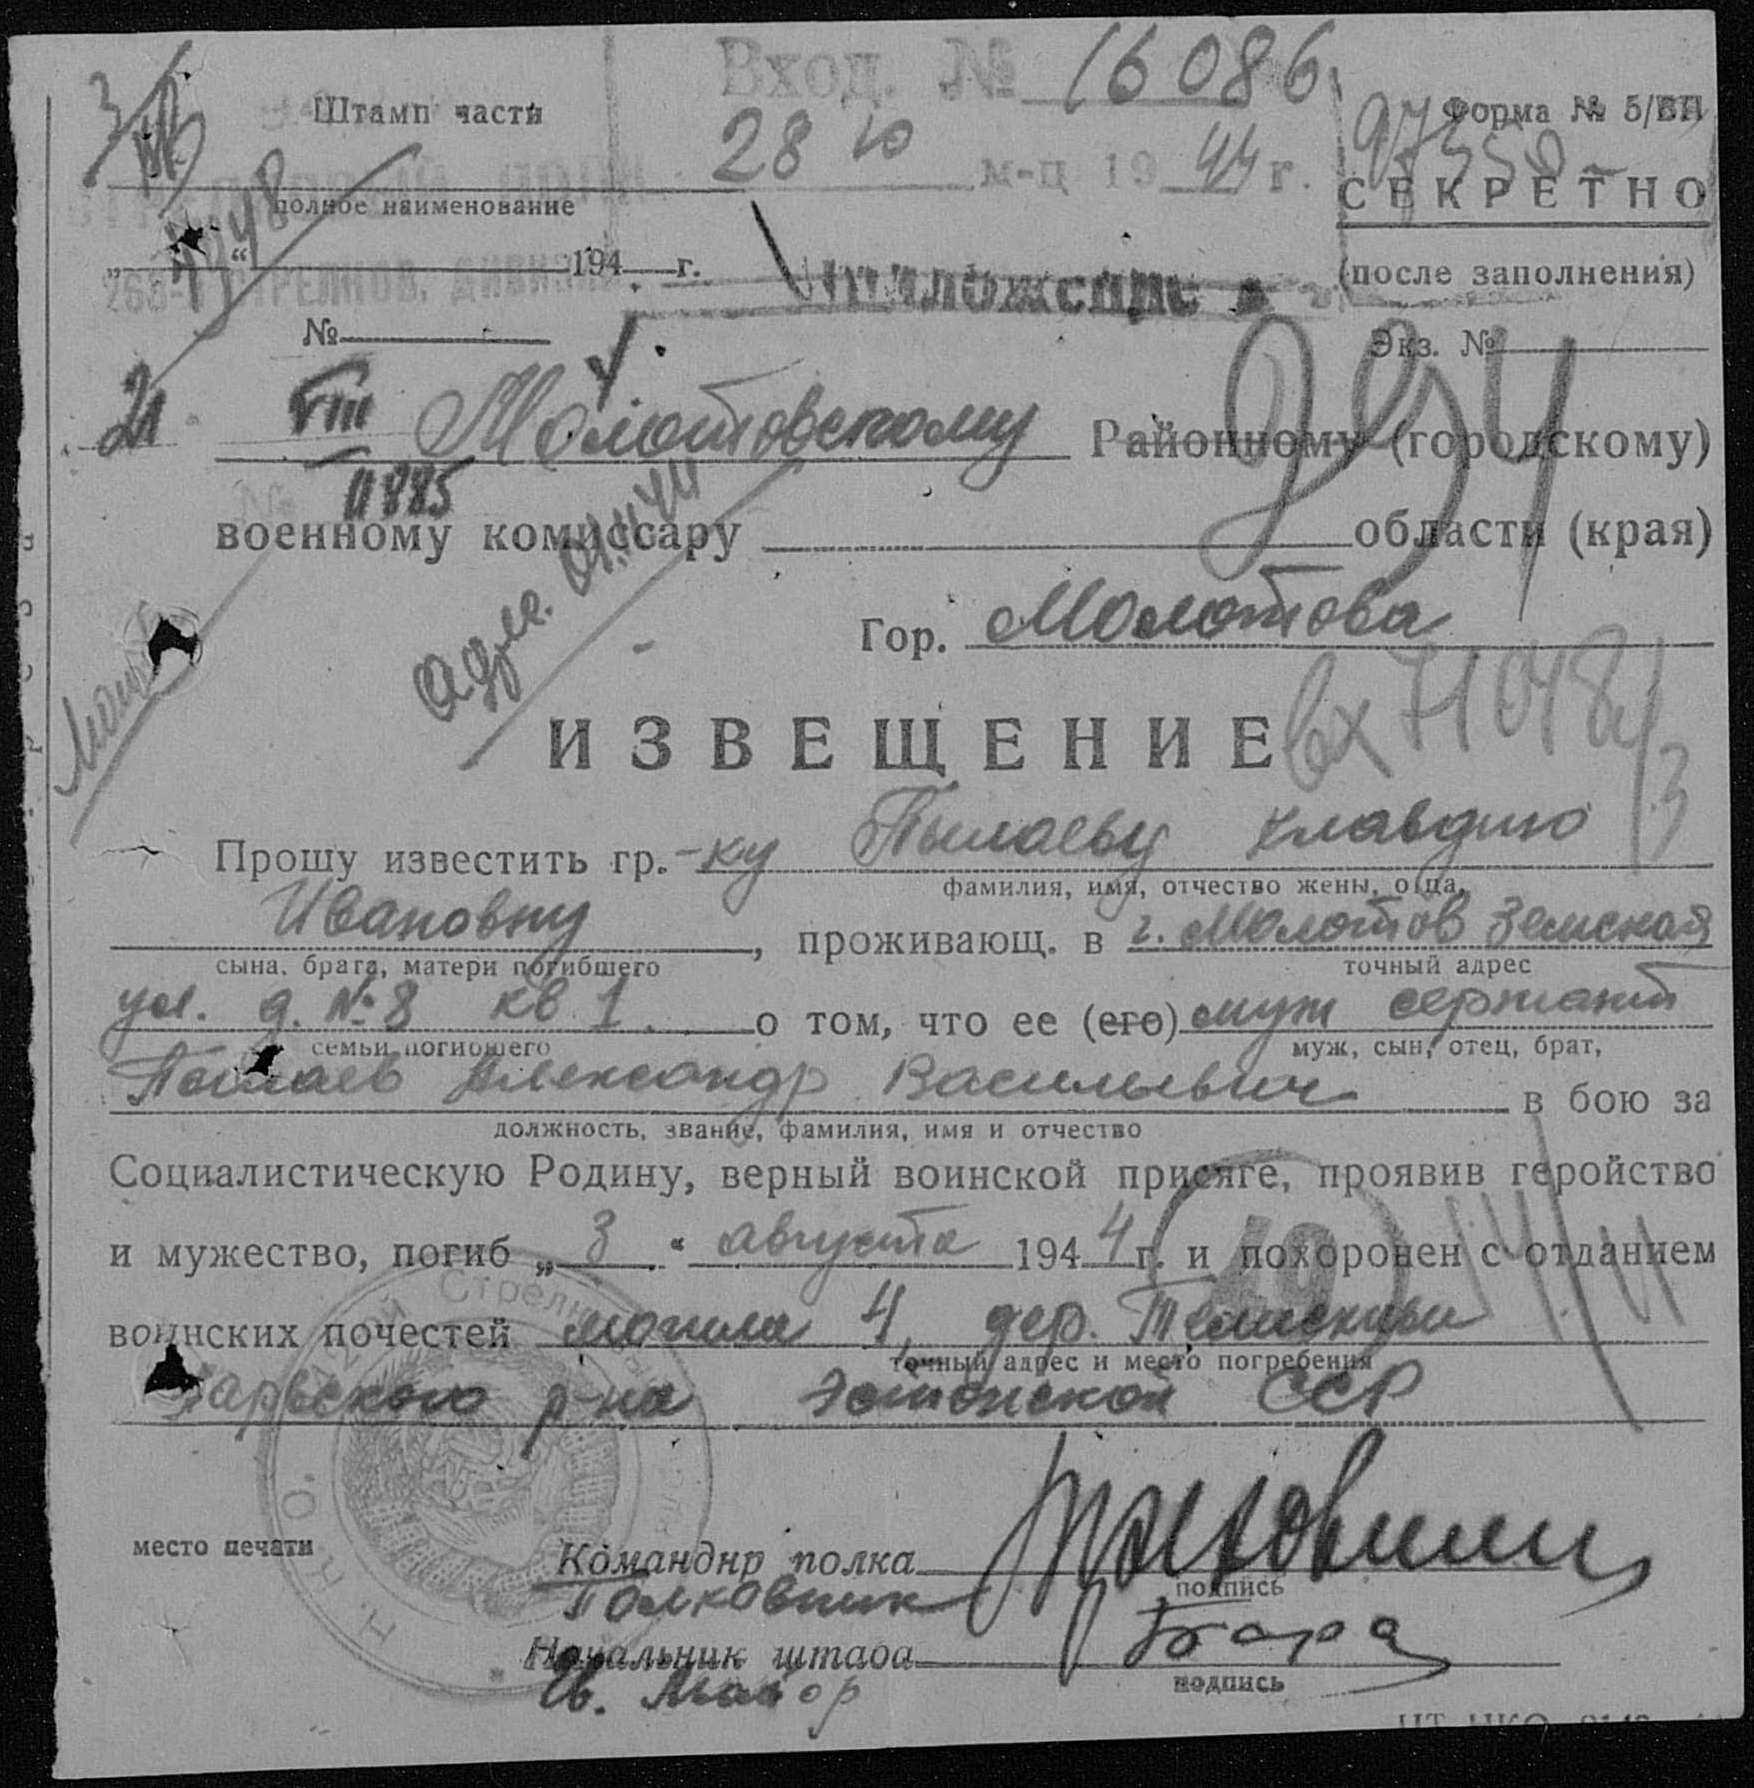 Вход. № 16086
Штамп части
Форма № 5/БП
28 ю м-ц 1944 г.
97350
полное наименование
СЕКРЕТНО
„ “ 194 г.
(после заполнения)
268-й СТРЕЛКОВ. ДИВИЗИИ
Приложение
№
Экз. №
21 VIII Молотовскому Районному (городскому)
11885
военному комиссару области (края)
Гор. Молотова
ИЗВЕЩЕНИЕ
вх 71048/3
Прошу известить гр.-ку Пылаеву Клавдию
фамилия, имя, отчество жены, отца,
Ивановну, проживающ. в г. Молотов Земская
сына, брата, матери погибшего точный адрес
ул. д. № 8 кв 1 о том, что ее (его) муж сержант
семьи погибшего муж, сын, отец, брат,
Пылаев Александр Васильевич в бою за
должность, звание, фамилия, имя и отчество
Социалистическую Родину, верный воинской присяге, проявив геройство
и мужество, погиб „3“ августа 1944 г. и похоронен с отданием
49
воинских почестей могила 4, дер.
точный адрес и место погребения
Нарвского р-на Эстонской ССР
место печати
Командир полка
Полковник
подпись
Начальник штаба
Гв. Майор
подпись
Н. К. О.